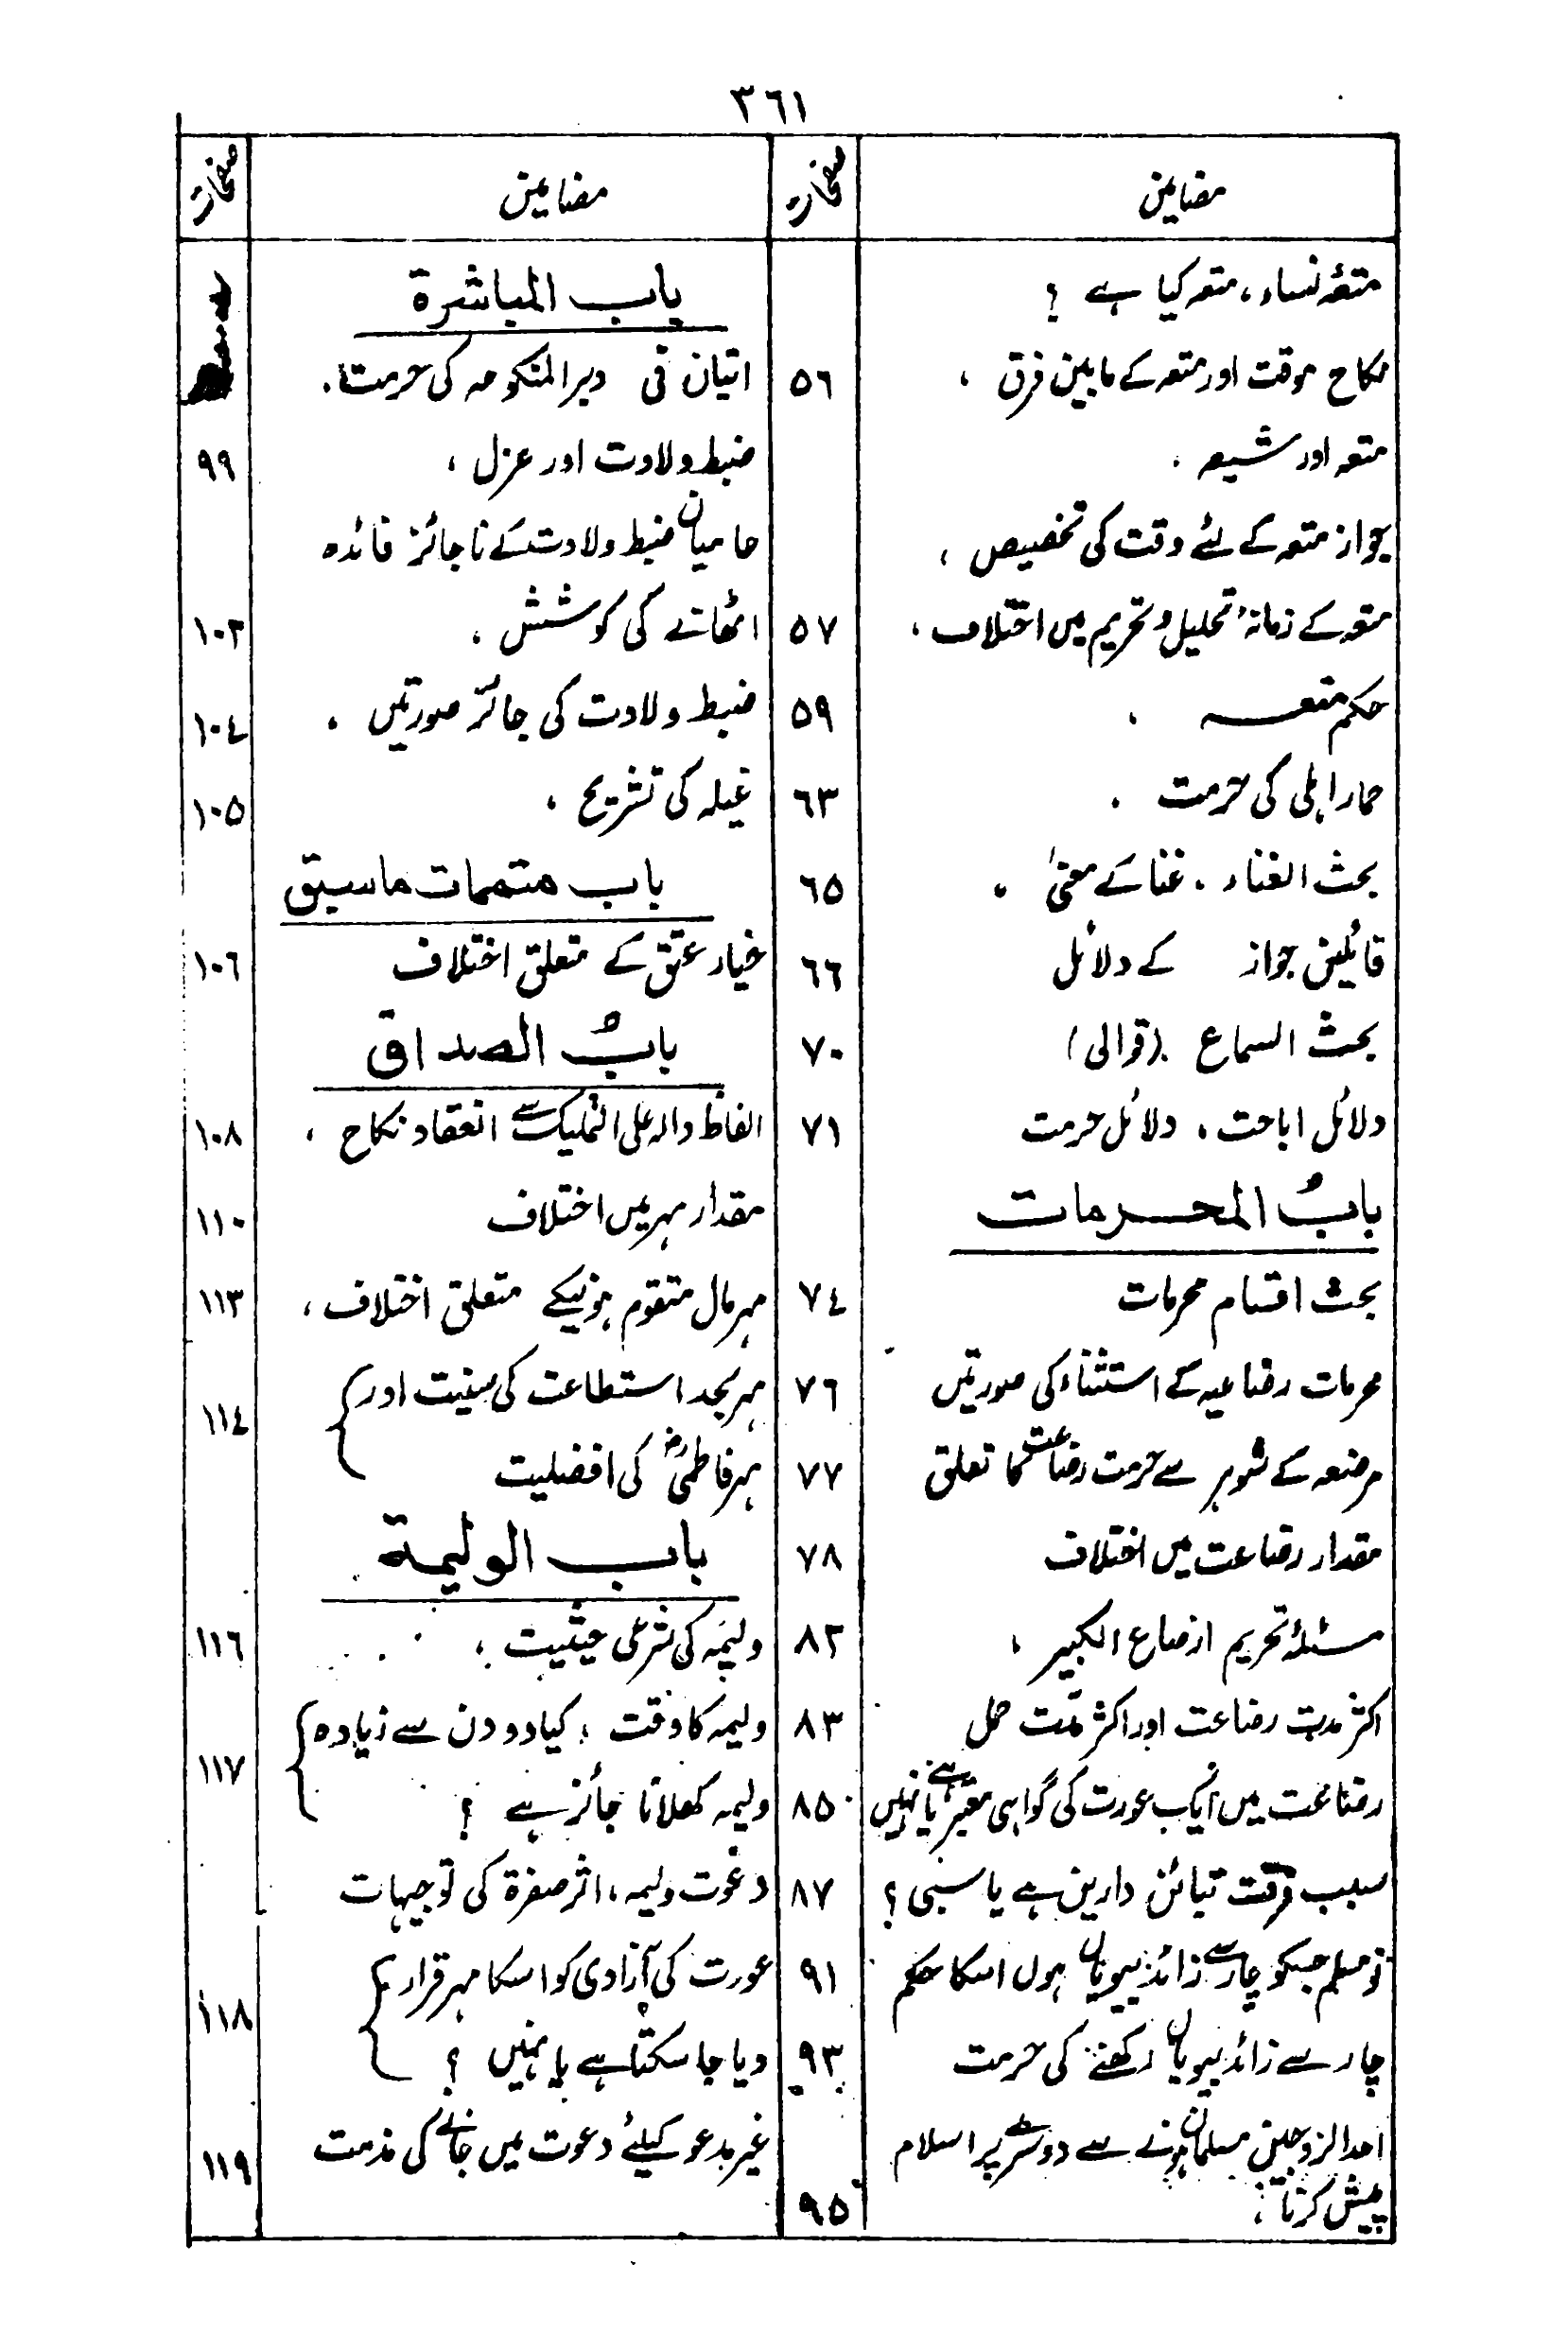 ٣٦١
مضامین
صفحات
متعۂ نساء، متعہ کیا ہے ؟
نکاح موقت اور متعہ کے مابین فرق ، ٥٦
متعہ اور شیعہ ،
جواز متعہ کے لئے وقت کی تخصیص ،
متعہ کے زمانۂ تحلیل و تحریم میں اختلاف ، ٥٧
حکم متعہ ، ٥٩
حمار اہلی کی حرمت ، ٦٣
بحث الغناء ، غنا کے معنیٰ ، ٦٥
قائلین جواز کے دلائل ٦٦
بحث السماع (قوالی) ٧٠
دلائل اباحت ، دلائل حرمت ٧١
بابُ المحرمات
بحث اقسام محرمات ٧٤
محرمات رضاعیہ کے استثناء کی صورتیں ٧٦
مرضعہ کے شوہر سے حرمت رضاعت کا تعلق ٧٧
مقدار رضاعت میں اختلاف ٧٨
مسئلۂ تحریم ارضاع الکبیر ، ٨٢
اکثر مدت رضاعت اور اکثر مدّت حمل ٨٣
رضاعت میں ایک عورت کی گواہی معتبر ہے یا نہیں ٨٥
سبب فرقت تبائن دارین ہے یا سبی ؟ ٨٧
نو مسلم جسکو چار سے زائد بیویاں ہوں اسکا حکم ٩١
چار سے زائد بیویاں رکھنے کی حرمت ٩٣
احد الزوجین مسلمان ہونے سے دوسرے پر اسلام
پیش کرنا ، ٩٥
مضامین
صفحات
باب المباشرة
اتیان فی دبر المنکوحہ کی حرمت ،
ضبط ولادت اور عزل ، ٩٩
حامیان ضبط ولادت کے ناجائز فائدہ
اٹھانے کی کوشش ، ١٠٢
ضبط ولادت کی جائز صورتیں ، ١٠٤
غیلہ کی تشریح ، ١٠٥
باب متممات ماسبق
خیار عتق کے متعلق اختلاف ١٠٦
بابُ الصداق
الفاظ دالہ علی التملیک سے انعقاد نکاح ، ١٠٨
مقدار مہر میں اختلاف ١١٠
مہر مال متقوم ہونیکے متعلق اختلاف ، ١١٣
مہر بحد استطاعت کی سنیت اور
مہر فاطمیؓ کی افضلیت ١١٤
باب الولیمة
ولیمہ کی شرعی حیثیت ، ١١٦
ولیمہ کا وقت ، کیا دو دن سے زیادہ
ولیمہ کھلانا جائز ہے ؟ ١١٧
دعوت ولیمہ ، اثر صفرة کی توجیہات
عورت کی آزادی کو اسکا مہر قرار
دیا جا سکتا ہے یا نہیں ؟ ١١٨
غیر مدعو کیلئے دعوت میں جانے کی مذمت ١١٩